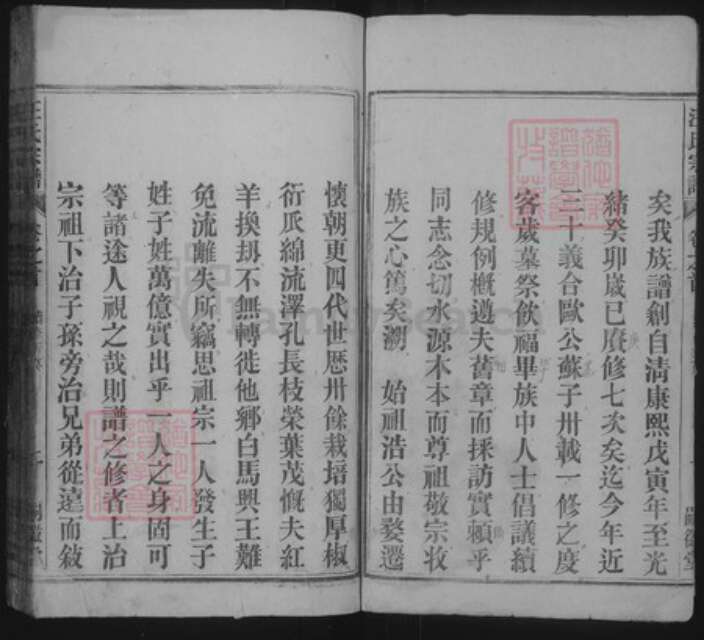 矣我族譜創自清康熙戊寅年至光
緒癸卯歲已賡修七次矣迄今年近
三十義合歐公蘇子卅載一修之度
客歲墓祭飲福畢族中人士倡議續
修規例概遵夫舊章而採訪實賴乎
同志念切水源木本而尊祖敬宗收
族之心篤矣溯 始祖浩公由婺遷
懷朝更四代世歷卅餘栽培獨厚椒
衍瓜綿流澤孔長枝榮葉茂慨夫紅
羊換刧不無轉徙他鄉白馬興王難
免流離失所竊思祖宗一人發生子
姓子姓萬億實出乎一人之身固可
等諸途人視之哉則譜之修者上治
宗祖下治子孫旁治兄弟從遠而敍
汪氏宗譜